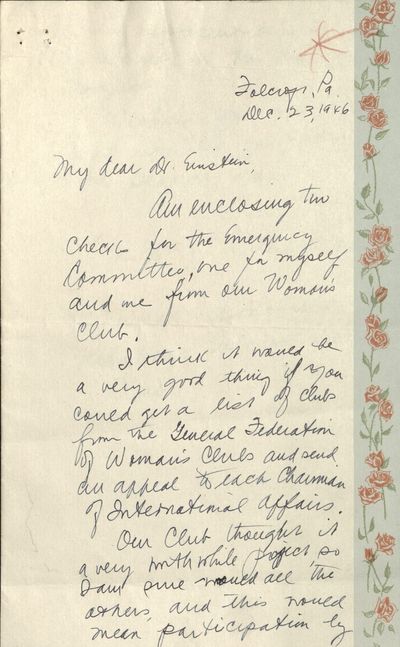 Folcroft, Pa.
Dec. 23, 1946
My dear Dr. Einstein,
Am enclosing two
checks for the Emergency
Committee, one for myself
and one from our Woman's
Club.
I think it would be
a very good thing if you
could get a list of clubs
from the General Federation
of Woman's Clubs and send
an appeal to each Chairman
of International Affairs.
Our Club thought it
a very worth while project, so
I am sure would all the
others, and this would
mean participation by